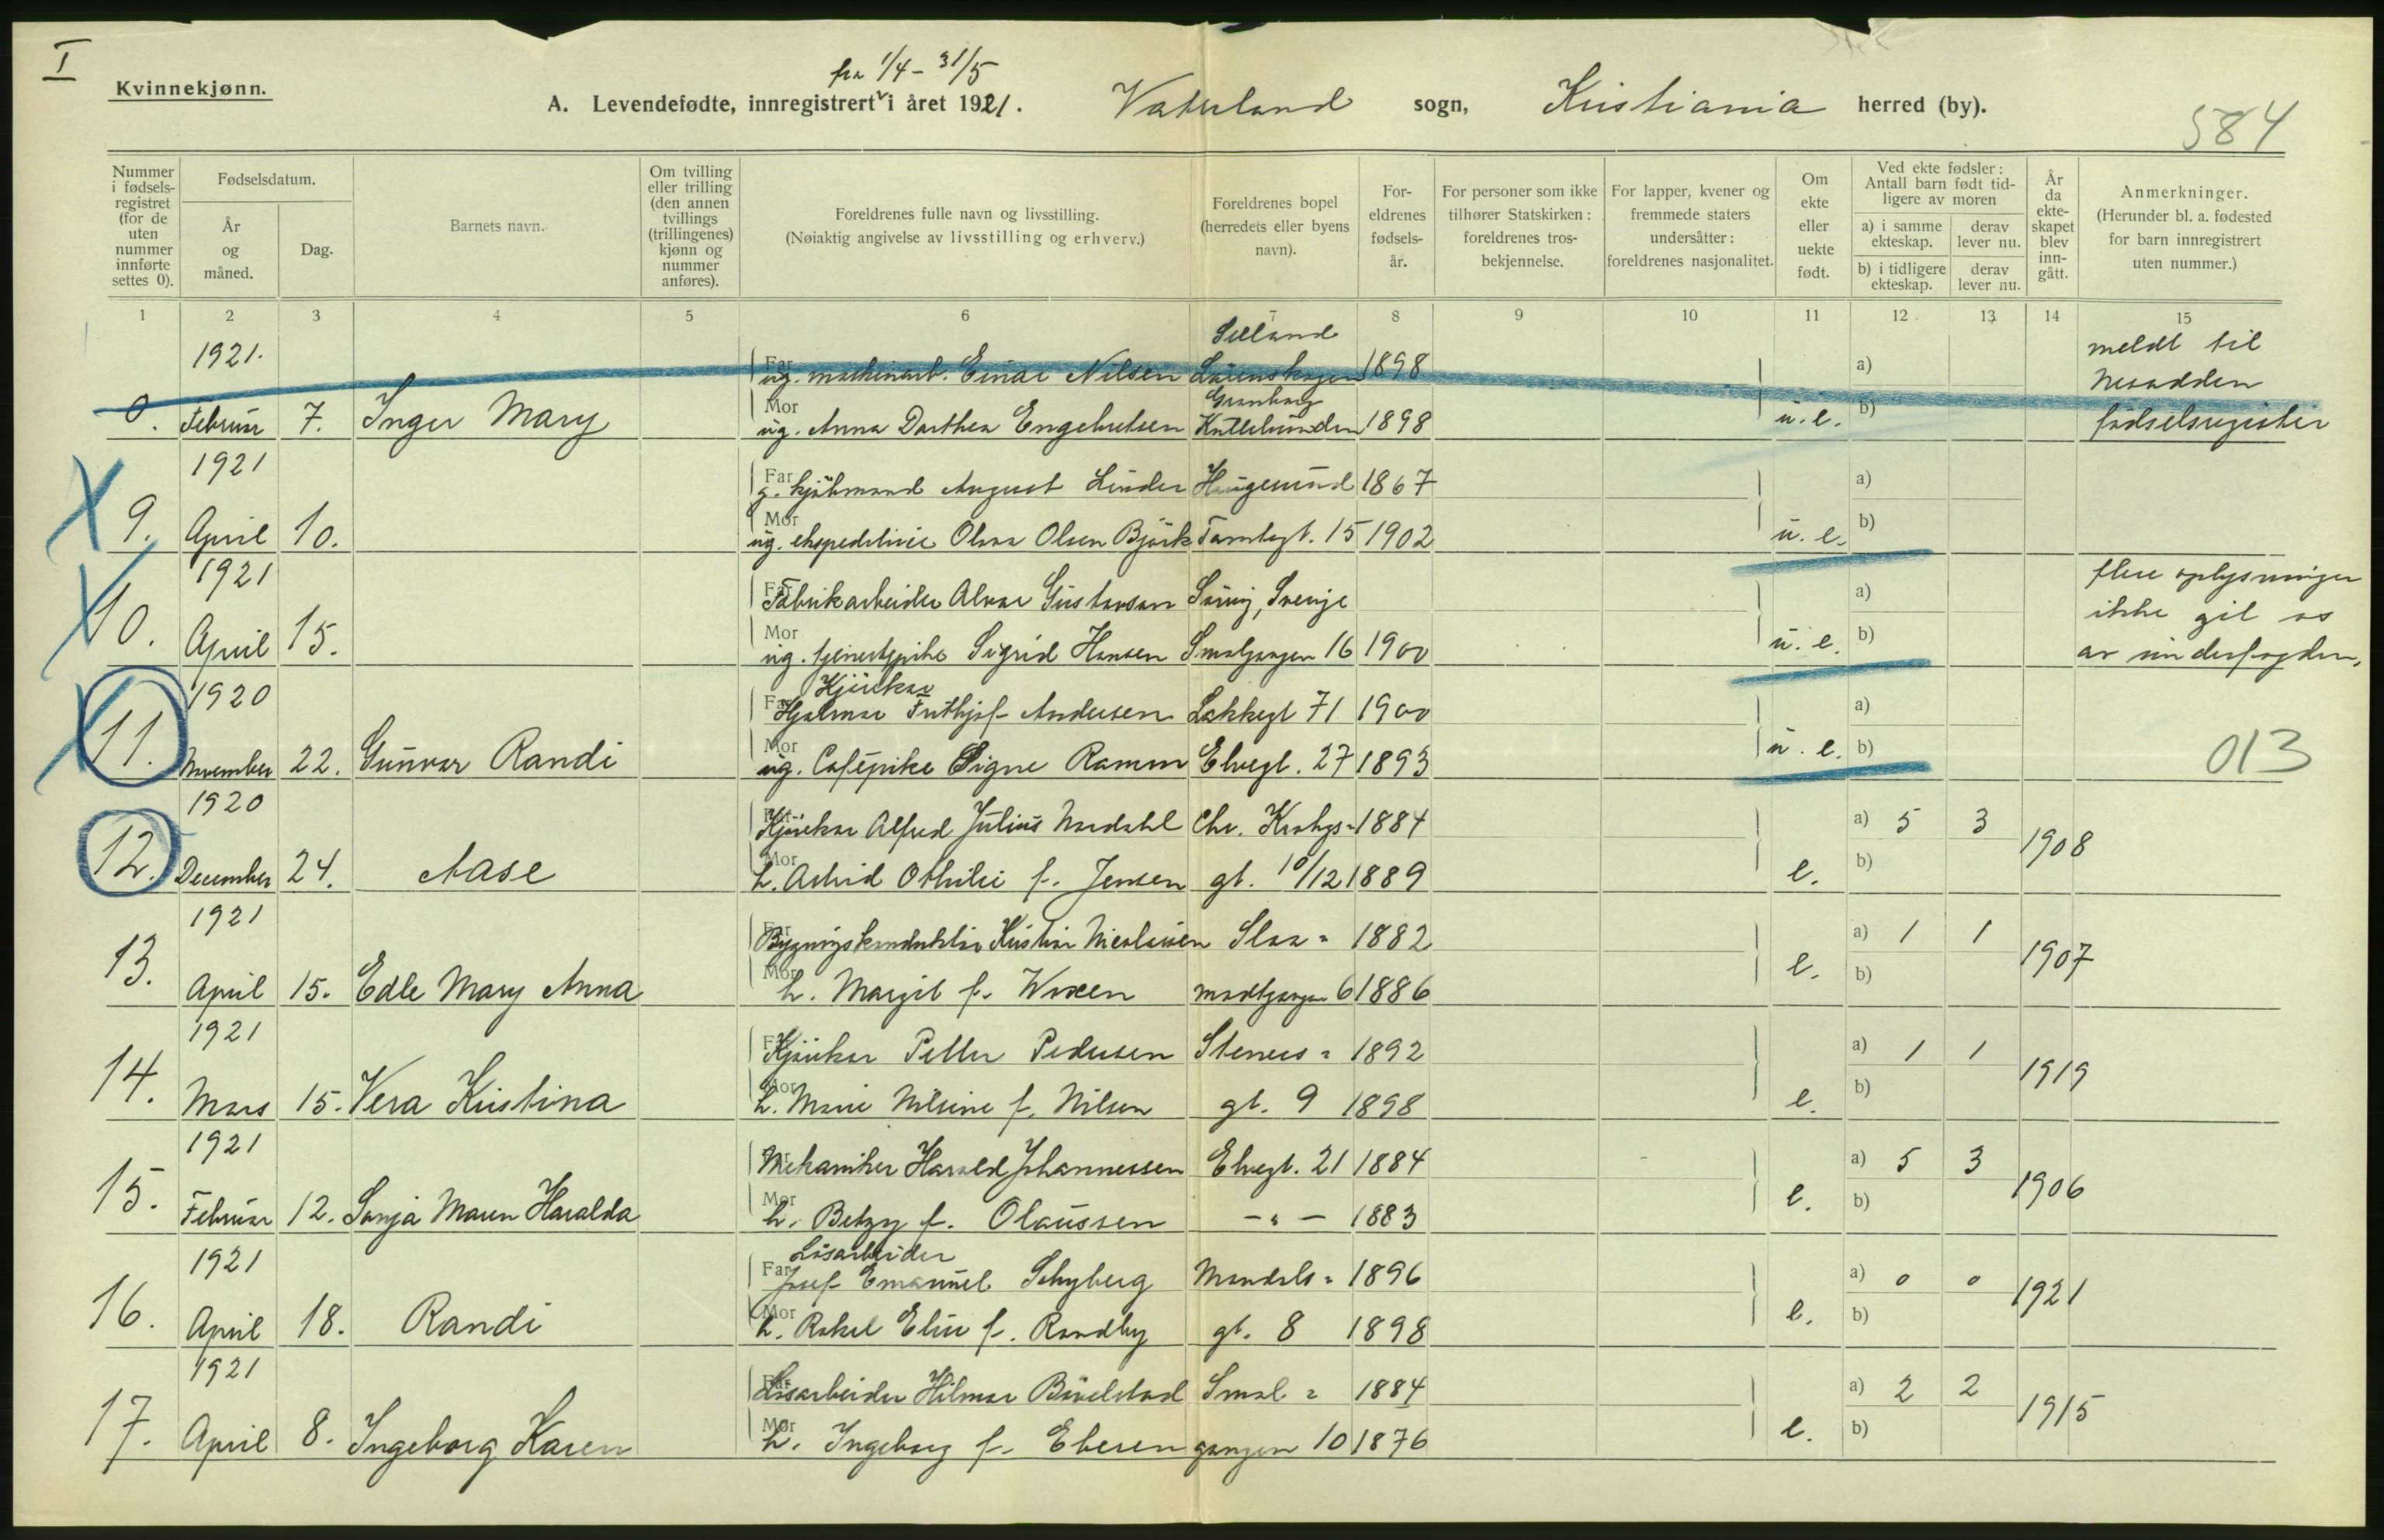 I
Kvinnekjønn.
fra 1/4 - 31/5
A. Levendefødte, innregistrert i året 1921. Vaterland sogn, Kristiania herred (by).
584
Nummer i fødsels-registret (for de uten nummer innførte settes 0).
Fødselsdatum.
År og måned.
Dag.
Barnets navn.
Om tvilling eller trilling (den annen tvillings (trillingenes) kjønn og nummer anføres).
Foreldrenes fulle navn og livsstilling.
(Nøiaktig angivelse av livsstilling og erhverv.)
Foreldrenes bopel (herredets eller byens navn).
For-eldrenes fødsels-år.
For personer som ikke tilhører Statskirken: foreldrenes tros-bekjennelse.
For lapper, kvener og fremmede staters undersåtter: foreldrenes nasjonalitet.
Om ekte eller uekte født.
Ved ekte fødsler: Antall barn født tid-ligere av moren
a) i samme ekteskap.
derav lever nu.
b) i tidligere ekteskap.
derav lever nu.
År da ekte-skapet blev inn-gått.
Anmerkninger.
(Herunder bl. a. fødested for barn innregistrert uten nummer.)
1 2 3 4 5 6 7 8 9 10 11 12 13 14 15
1921. Far ug. maskinarb. Einar Nilsen 1898 a) meldt til Nesodden
0. Februar 7. Inger Mary Mor ug. Anna Dorthea Engebretsen 1898 u. e. b) fødselsregister
1921 Far g. kjøbmand August Linder Haugesund 1867 a)
9. April 10. Mor ug. ekspeditrice Olava Olsen Bjørk Tomtegt. 15 1902 u. e. b)
1921 Far Fabrikarbeider Alvar Gustavson Sverige a) flere oplysninger ikke git os
10. April 15. Mor ug. tjenestepike Sigrid Hansen Smalgangen 16 1900 u. e. b) av
1920 Kjørekar
Far Hjalmar Frithjof Andersen Lakkegt 71 1900 a)
11. November 22. Gunvor Randi Mor ug. Cafépike Signe Ramm Elvegt. 27 1893 u. e. b) 013
1920 Far Kjørekar Alfred Julius Nordahl Chr. Krohgs= 1884 a) 5 3
12. December 24. Aase Mor h. Astrid Othilie f. Jensen gt. 10/12 1889 e. b) 1908
1921 Far Bygningskonduktør Kristian Nicolaisen Slaa= 1882 a) 1 1
13. April 15. Edle Mary Anna Mor h. Margit f. Wixen modtgangen 6 1886 e. b) 1907
1921 Far Kjørekar Petter Pedersen Steners= 1892 a) 1 1
14. Mars 15. Vera Kristina Mor h. Marie Nilsine f. Nilsen gt. 9 1898 e. b) 1919
1921 Far Mekaniker Harald Johannessen Elvegt. 21 1884 a) 5 3
15. Februar 12. Sonja Maren Haralda Mor h. Betzy f. Olaussen - " - 1883 e. b) 1906
1921 Løsarbeider
Far Josef Emanuel Schyberg Mandals= 1896 a) 0 0
16. April 18. Randi Mor h. Rakel Elise f. Randby gt. 8 1898 e. b) 1921
1921 Far Løsarbeider Hilmar Bøvelstad Smal= 1884 a) 2 2
17. April 8. Ingeborg Karen Mor h. Ingeborg f. Ebersen gangen 10 1876 e. b) 1915